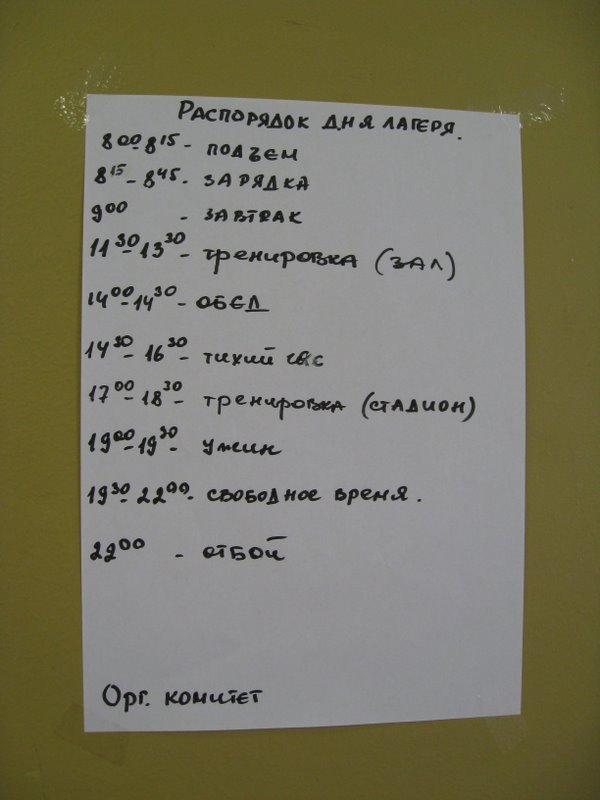 РАСПОРЯДОК ДНЯ ЛАГЕРЯ.
8⁰⁰-8¹⁵- ПОДЪЕМ
8¹⁵-8⁴⁵- ЗАРЯДКА
9⁰⁰ - ЗАВТРАК
11³⁰-13³⁰- тренировка (ЗАЛ)
14⁰⁰-14³⁰- ОБЕД
14³⁰-16³⁰- тихий час
17⁰⁰-18³⁰- тренировка (СТАДИОН)
19⁰⁰-19³⁰- ужин
19³⁰-22⁰⁰- свободное время.
22⁰⁰ - отбой
Орг. комитет